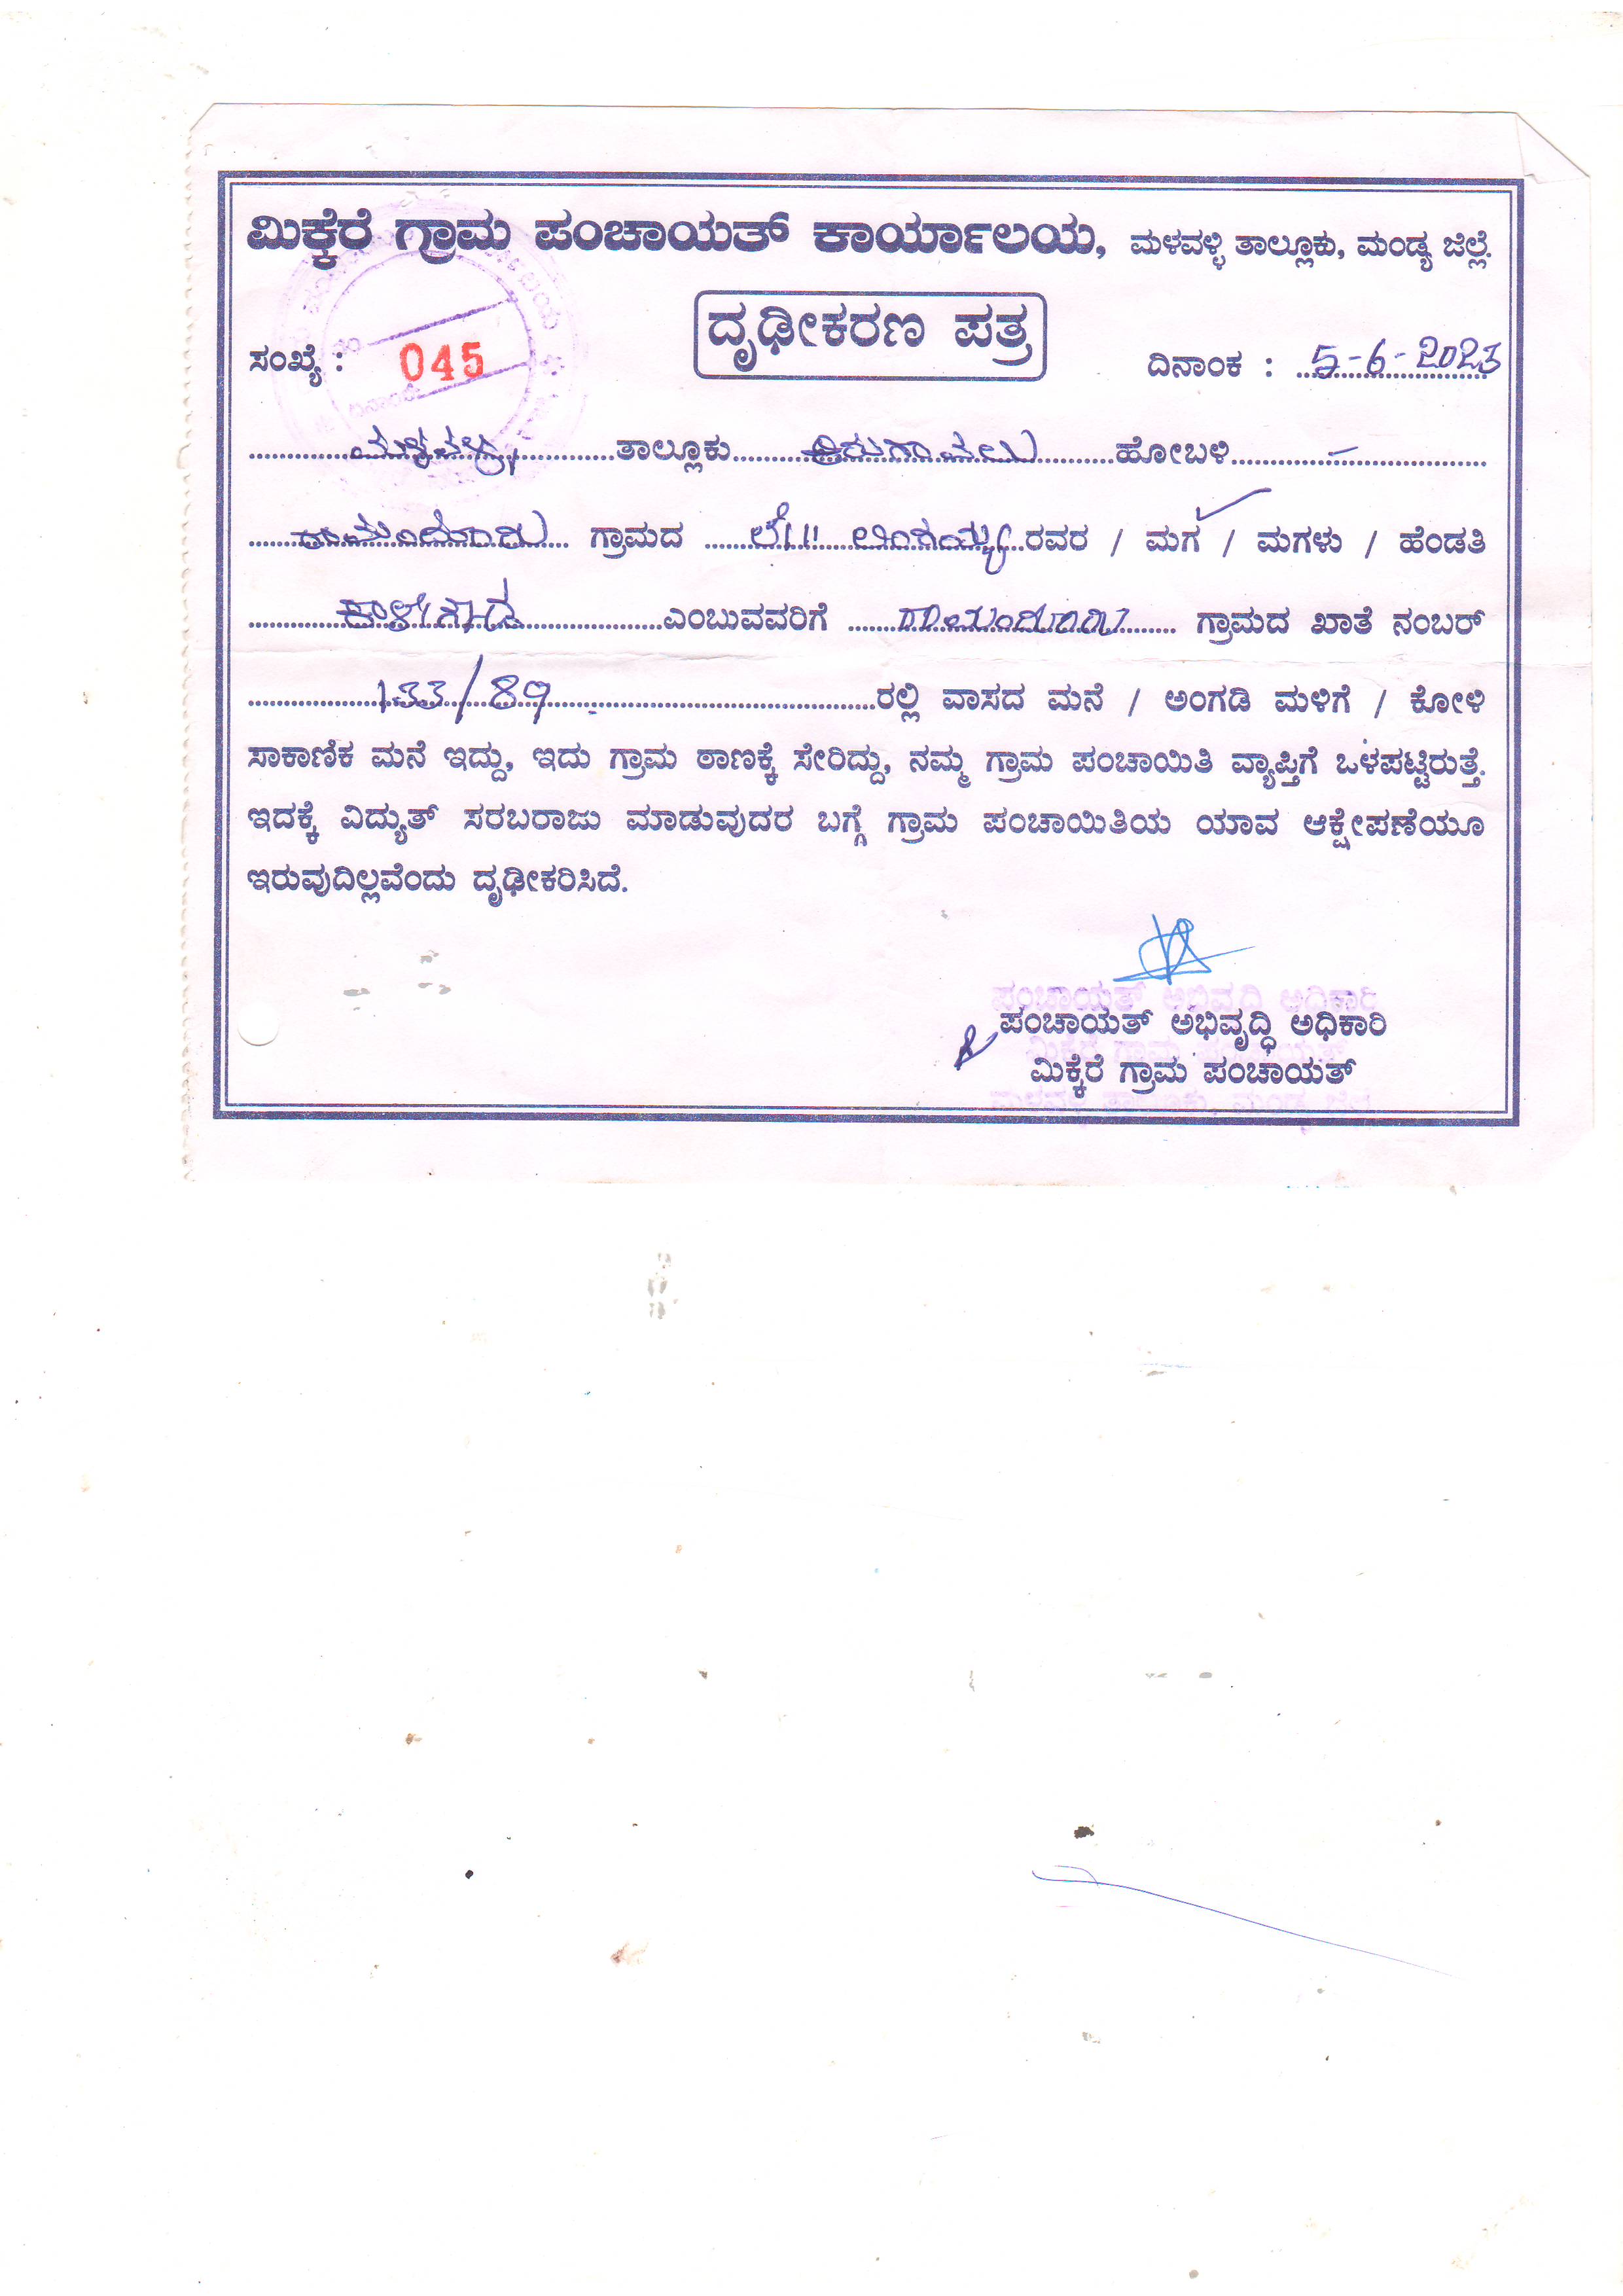 ಮಿಕ್ಕೆರೆ ಗ್ರಾಮ ಪಂಚಾಯತ್ ಕಾರ್ಯಾಲಯ, ಮಳವಳ್ಳಿ ತಾಲ್ಲೂಕು, ಮಂಡ್ಯ ಜಿಲ್ಲೆ.
ದೃಢೀಕರಣ ಪತ್ರ
ಸಂಖ್ಯೆ : 045 ದಿನಾಂಕ : 5-6-2023
ಮಳವಳ್ಳಿ ತಾಲ್ಲೂಕು ಕಿರುಗಾವಲು ಹೋಬಳಿ -
ಗ್ರಾಮದ ಲೇ|| ಲಿಂಗಯ್ಯ ರವರ / ಮಗ / ಮಗಳು / ಹೆಂಡತಿ
ಎಂಬುವವರಿಗೆ ಗ್ರಾಮದ ಖಾತೆ ನಂಬರ್
133/89 ರಲ್ಲಿ ವಾಸದ ಮನೆ / ಅಂಗಡಿ ಮಳಿಗೆ / ಕೋಳಿ
ಸಾಕಾಣಿಕ ಮನೆ ಇದ್ದು, ಇದು ಗ್ರಾಮ ಠಾಣಕ್ಕೆ ಸೇರಿದ್ದು, ನಮ್ಮ ಗ್ರಾಮ ಪಂಚಾಯಿತಿ ವ್ಯಾಪ್ತಿಗೆ ಒಳಪಟ್ಟಿರುತ್ತೆ.
ಇದಕ್ಕೆ ವಿದ್ಯುತ್ ಸರಬರಾಜು ಮಾಡುವುದರ ಬಗ್ಗೆ ಗ್ರಾಮ ಪಂಚಾಯಿತಿಯ ಯಾವ ಆಕ್ಷೇಪಣೆಯೂ
ಇರುವುದಿಲ್ಲವೆಂದು ದೃಢೀಕರಿಸಿದೆ.
ಪಂಚಾಯತ್ ಅಭಿವೃದ್ಧಿ ಅಧಿಕಾರಿ
ಪಂಚಾಯತ್ ಅಭಿವೃದ್ಧಿ ಅಧಿಕಾರಿ
ಮಿಕ್ಕೆರೆ ಗ್ರಾಮ ಪಂಚಾಯತ್